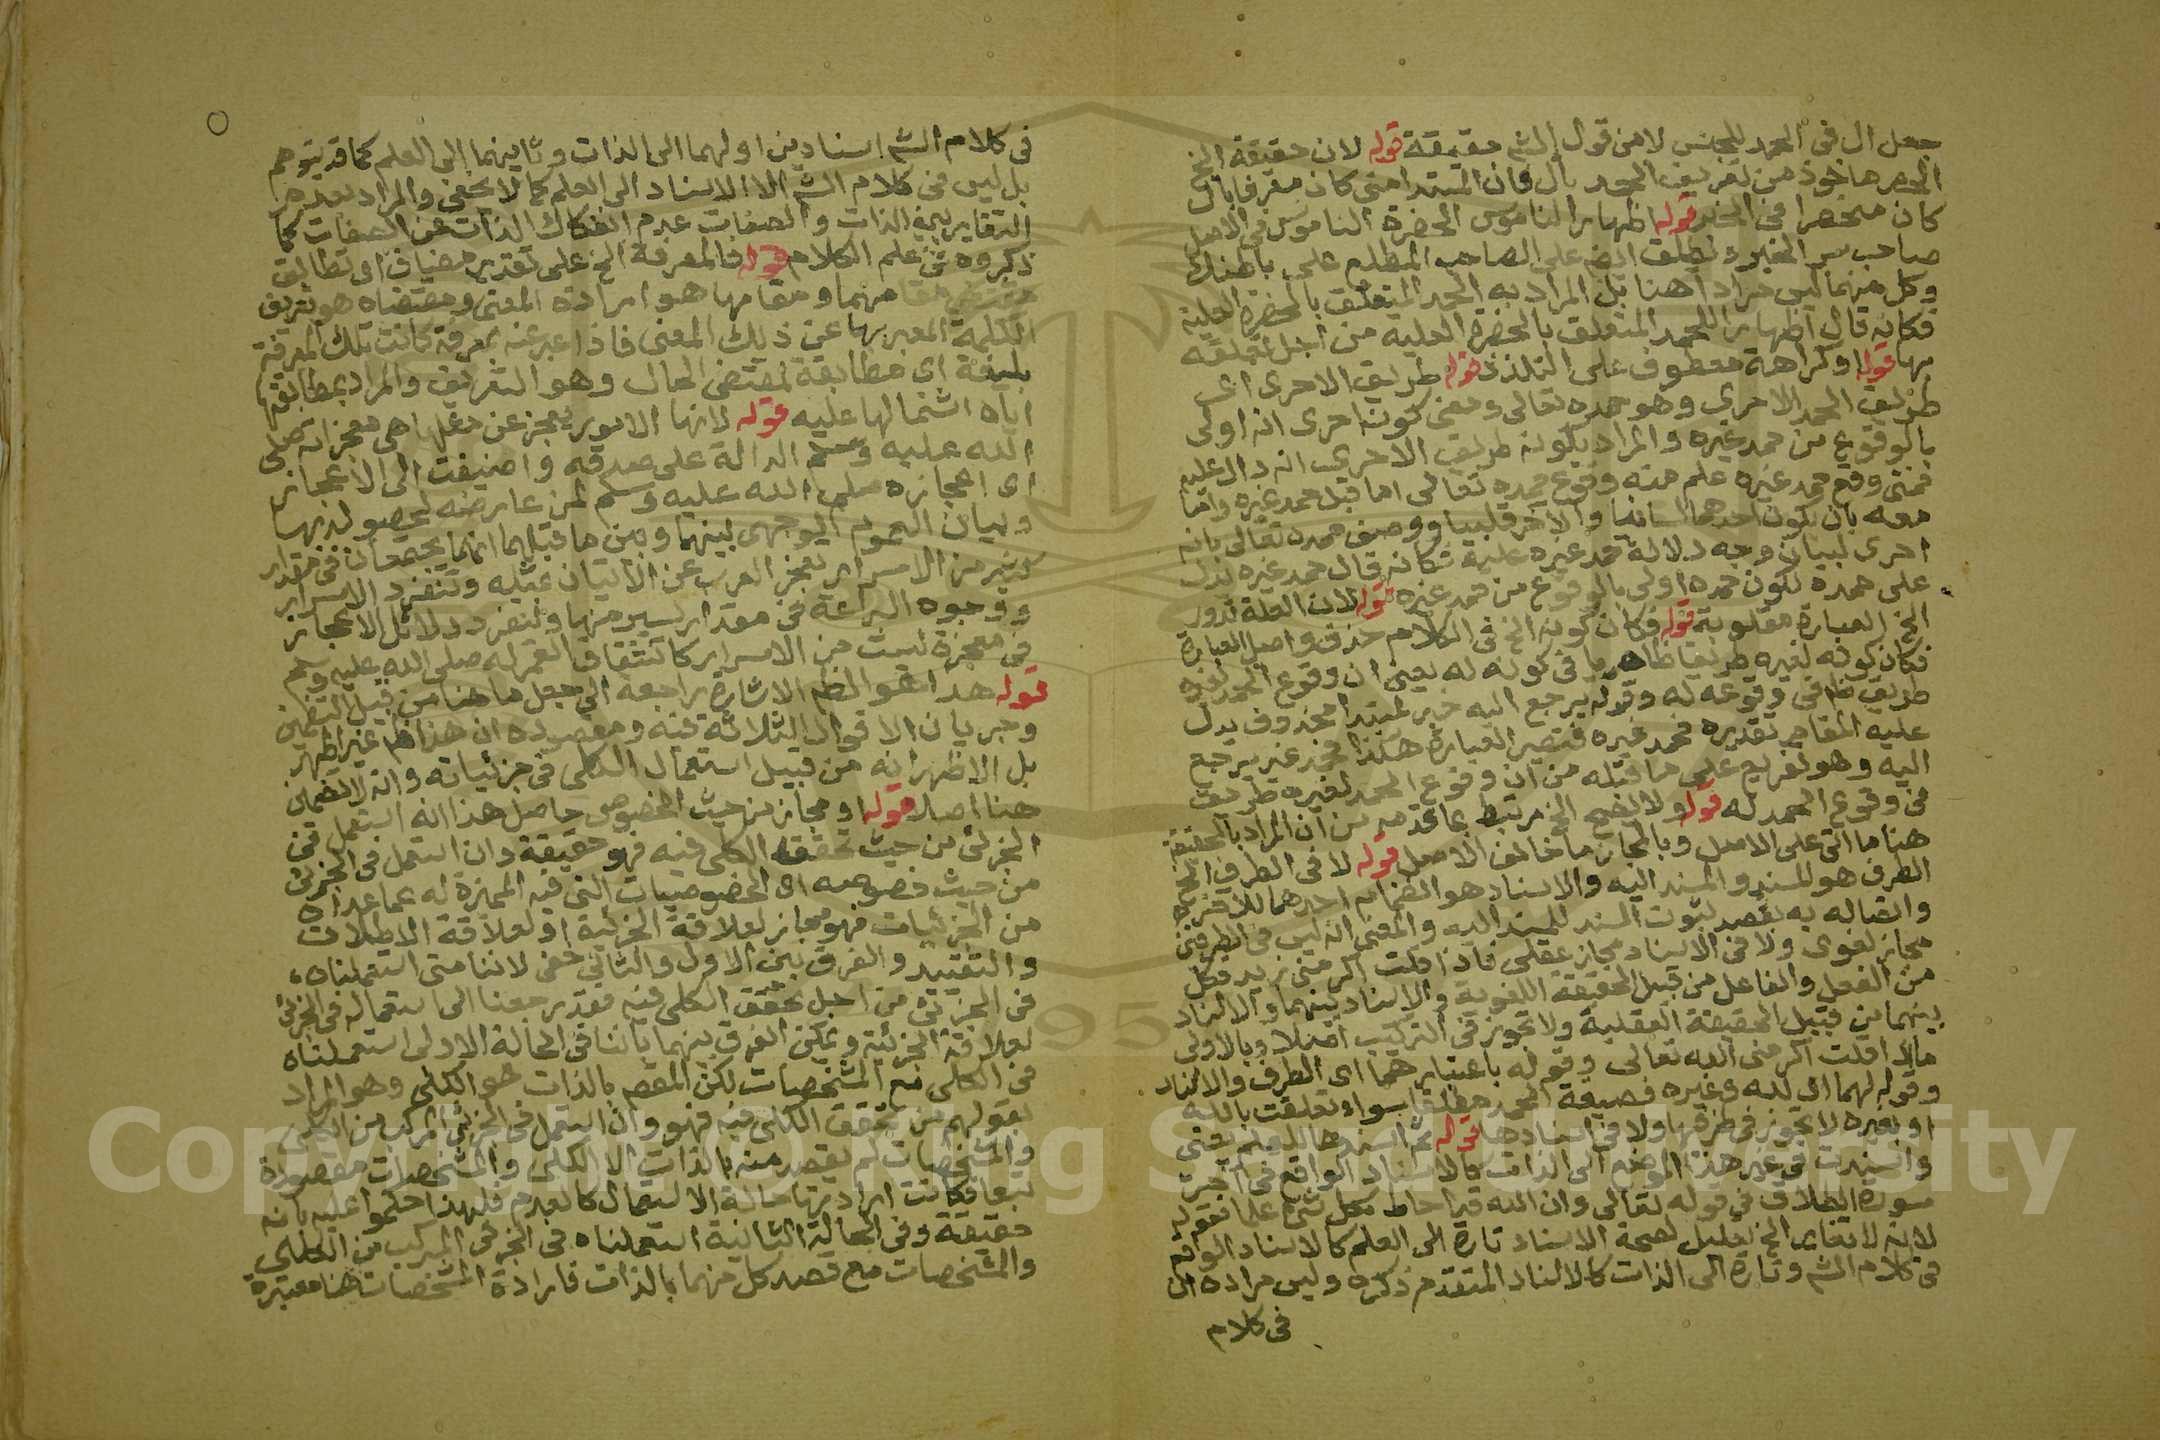 جعل ال في الحمد للجنس لا من قول الشم حقيقة قوله لان حقيقة الخ
الحصر ماخوذ من تعريف الحمد بأل فان المبتدا متى كان معرفا بال
كان منحصرا في الخبر قوله اظهارا لناموس الحضرة الناموس في الاصل
صاحب سر الخير ويطلق ايضا على الصاحب المطلع على باطنك
وكل منهما ليس مرادا هنا بل المراد به الحمد المتعلق بالحضرة العلية
فكانه قال اظهارا للحمد المتعلق بالحضرة العلية من اجل تعلقه
بها قوله وكراهة معطوف على التلذذ قوله طريق الاحرى اى
طريق الحمد الاحرى وهو حمده تعالى ومعنى كونه احرى انه اولى
بالوقوع من حمد غيره والمراد بكونه طريق الاحرى انه دال عليه
فمتى وقع حمد غيره علم منه وقوع حمده تعالى اما قبل حمد غيره واما
معه بان يكون احدهما لسانيا والآخر قلبيا ووصف حمده تعالى بانه
احرى لبيان وجه دلالة حمد غيره عليه فكانه قال حمد غيره يدل
على حمده لكون حمده اولى بالوقوع من حمد غيره قوله لان العلة تدور
الخ العبارة مقلوبة قوله فكان كونه الخ في الكلام حذف واصل العبارة
فكان كونه لغيره طريقا ظاهريا في كونه له يعني ان وقوع الحمد لغيره
طريق ظم في وقوعه له وقوله يرجع اليه خبر لمبتدا محذوف يدل
عليه المقام تقديره فحمد غيره فتصير العبارة هكذا فحمد غيره يرجع
اليه وهو تفريع على ما قبله من ان وقوع الحمد لغيره طريق
في وقوع الحمد له قوله ولا يصح الخ مرتبط بما تقدم من ان المراد بالحقيقة
هنا ما اتى على الاصل وبالمجاز ما خالف الاصل قوله لا في الطرف الخ
الطرف هو المسند والمسند اليه والاسناد هو انضمام احدهما للاخر
واتصاله به بقصد ثبوت المسند للمسند اليه والمعنى انه ليس في الطرفين
مجاز لغوى ولا في الاسناد مجاز عقلى فاذا قلت اكرمنى زيد فكل
من الفعل والفاعل من قبيل الحقيقة اللغوية والاسناد بينهما والاسناد
بينهما من قبيل الحقيقة العقلية ولا تجوز في التركيب اصلا وبالاولى
ما اذا قلت اكرمنى الله تعالى وقوله باعتبارهما اى الطرف والاسناد
وقوله لهما اى لله وغيره فصيغة الحمد مطلقا سواء تعلقت بالله
او بغيره لا تجوز في طرفها ولا في اسنادها قوله ثم اسندها للعلم يعنى
واسندت في غير هذا الموضع الى الذات كالاسناد الواقع في آخر
سورة الطلاق في قوله تعالى وان الله قد احاط بكل شئ علما قوله
لانه لا تغاير الخ تعليل لصحة الاسناد تارة الى العلم كالاسناد الواقع
في كلام الشم وتارة الى الذات كالاسناد المتقدم ذكره وليس مراده ان
في كلام
في كلام الشم اسنادين اولهما الى الذات وثانيهما الى العلم كما قد يتوهم
بل ليس في كلام الشم الا الاسناد الى العلم كما لا يخفى والمراد بعدم
التغاير بين الذات والصفات عدم انفكاك الذات عن الصفات كما
ذكروه في علم الكلام قوله فالمعرفة الخ على تقدير مضاف اى تطابق
مقتضى مقامهما ومقامها هو ارادة المعنى ومقتضاه هو تعريف
الكلمة المعبر بها عن ذلك المعنى فاذا عبر عنه بمعرفة كانت تلك المعرفة
بليغة اى مطابقة لمقتضى الحال وهو التعريف والمراد بمطابقتها
اياه اشتمالها عليه قوله لانها الامور يعجز عن فعلها هي معجزاته صلى
الله عليه وسلم الدالة على صدقه واضيفت الى الاعجاز
اى اعجازه صلى الله عليه وسلم لمن عارضه لحصوله بها
وبيان العموم الوجهى بينهما وبين ما قبلهما انهما يجتمعان في مقدار
كثير من الاسرار يعجز العرب عن الاتيان بمثله وتنفرد الاسرار
ووجوه البراعة في مقدار يسير منها وتنفرد دلائل الاعجاز
في معجزة ليست من الاسرار كانشقاق القمر له صلى الله عليه وسلم
قوله هذا هو الظم الاشارة راجعة الى جعل ما هنا من قبيل التضمين
وجريان الاقوال الثلاثة فيه ومقصوده ان هذا ظم غير اظهر
بل الاظهر انه من قبيل استعمال الكلى في جزئياته وانه لا تضمين
هنا اصلا قوله او مجاز من حيث الخصوص حاصل هذا انه استعمل في
الجزئى من حيث تحقق الكلى فيه فهو حقيقة وان استعمل في الجزئى
من حيث خصوصه اى الخصوصيات التى فيه المميزة له عما عداه
من الجزئيات فهو مجاز لعلاقة الجزئية او لعلاقة الاطلاق
والتقييد والفرق بين الاول والثانى خفى لاننا متى استعملناه
في الجزئى من اجل تحقق الكلى فيه فقد رجعنا الى استعماله في الجزئى
لعلاقة الجزئية ويمكن الفرق بينهما باننا في الحالة الاولى استعملناه
في الكلى مع المشخصات لكن المقصم بالذات هو الكلى وهو المراد
بقولهم من تحقق الكلى فيه فهو وان استعمل في الجزئى المركب من الكلى
والمشخصات لم يقصد منه بالذات الا الكلى والمشخصات مقصودة
تبعا فكانت ارادتها حالة الاستعمال كالعدم فلهذا حكموا عليه بانه
حقيقة وفي الحالة الثانية استعملناه في الجزئى المركب من الكلى
والمشخصات مع قصد كل منهما بالذات فارادة المشخصات هنا معتبرة
Copyright © King Saud University